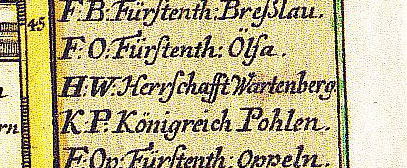 F. B. Fürstenth: Breßlau.
45
F. O. Fürstenth: Ölsa.
H. W. Herrschafft Wartenberg.
K. P. Königreich Pohlen.
F. Op: Fürstenth: Oppeln.